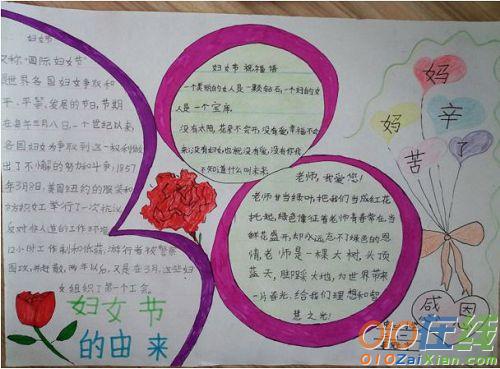 妇女节
又称"国际妇女节"
是世界各国妇女争取和
平、平等、发展的节日,节期
在每年三月八日,一个世纪以来,
各国妇女为争取到这一权利做
出了不懈的努力和斗争,1857
年3月8日,美国纽约的服装和
纺织女工举行了一次抗议
反对非人道的工作环境
12小时工作制和低薪,游行者被警察
围攻,并赶散,两年以后,又是在3月,这些妇
女组织了第一个工会
妇女节
的由来
妇女节祝福语
一个美丽的女人是一颗钻石,一个好的女
人是一个宝库
没有太阳,花朵不会开,没有爱,幸福不会
来;没有妇女,也就没有爱,没有你我
不知道什么叫未来
老师,我爱您!
老师甘当绿叶,把我们当成红花
托起,绿色像征着老师青春常在,当
鲜花盛开,却永远忘不了绿色的恩
情,老师是一棵大树,头顶
蓝天,脚踩大地,为世界带来
一片春光,给我们理想和智
慧之光!
妈
妈
辛
苦
了
感
恩
010在线
010ZaiXian.com